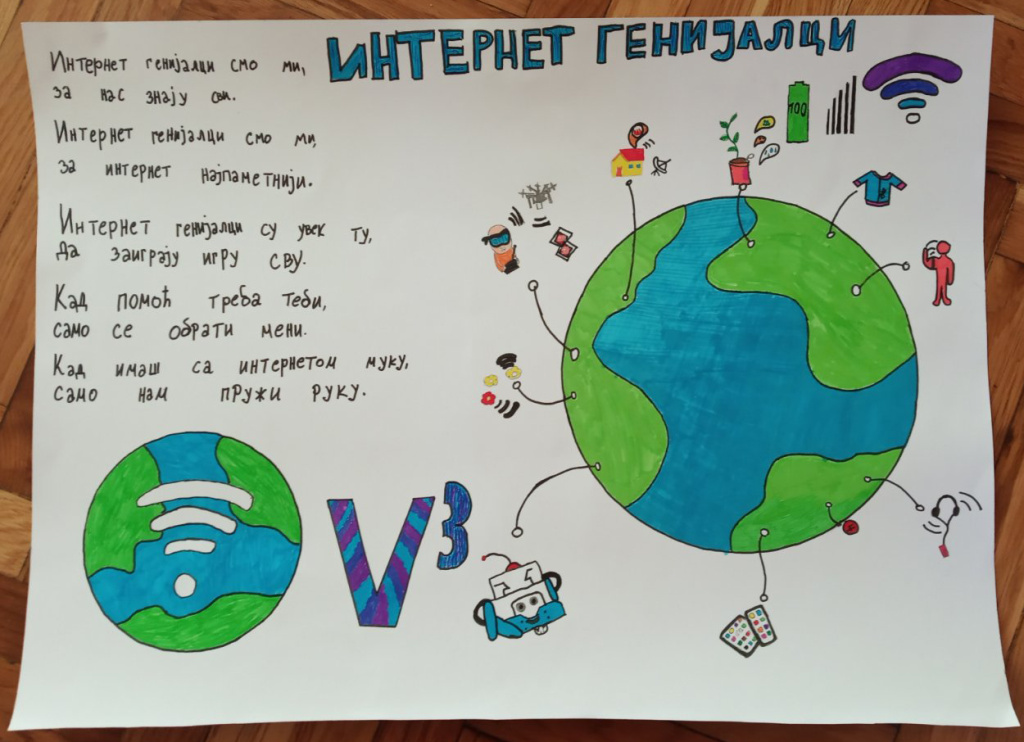 ИНТЕРНЕТ ГЕНИЈАЛЦИ
Интернет генијалци смо ми,
за нас знају сви.
Интернет генијалци смо ми,
за интернет најпаметнији.
Интернет генијалци су увек ту,
да заиграју игру сву.
Кад помоћ треба теби,
само се обрати мени.
Кад имаш са интернетом муку,
само нам пружи руку.
100
V³